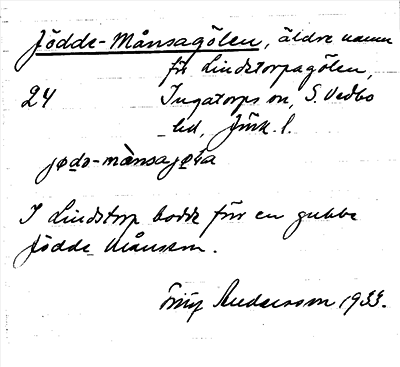 Jödde-Månsagölen, äldre namn
för Lindstorpagölen,
24 Ingatorps sn, S. Vedbo
hd, Jönk. l.
jødə-månsajøla
I Lindstorp bodde förr en gubbe
Jödde Månsson.
Andersson 1933.